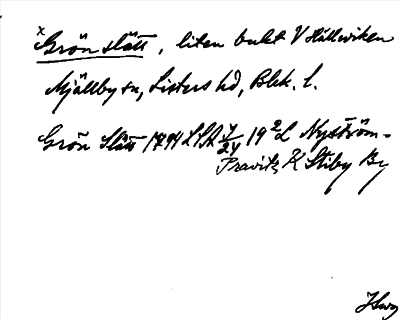 x Grön slätt, liten bukt V Hällviken
Mjällby sn, Listers hd, Blek. l.
Grön Slätt 1794 LSA 7/24 19 2 L Nyström-
Pravitz K Stiby By